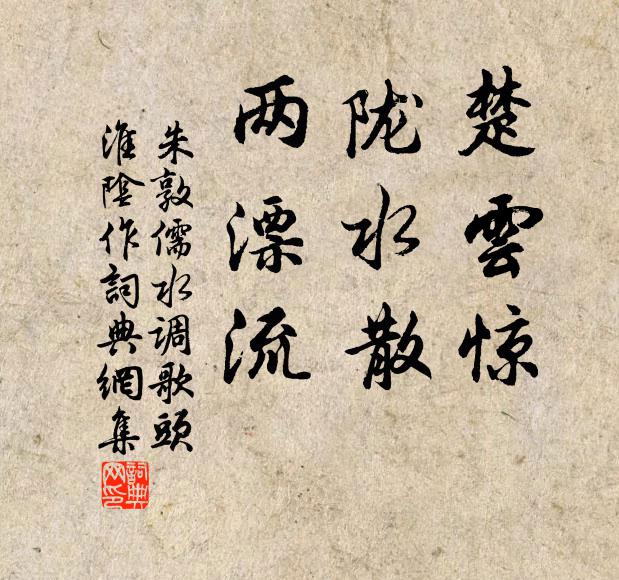 楚雲惊
陇水散
两漂流
朱敦儒水调歌頭
淮陰作詞典網集
詞典
网印